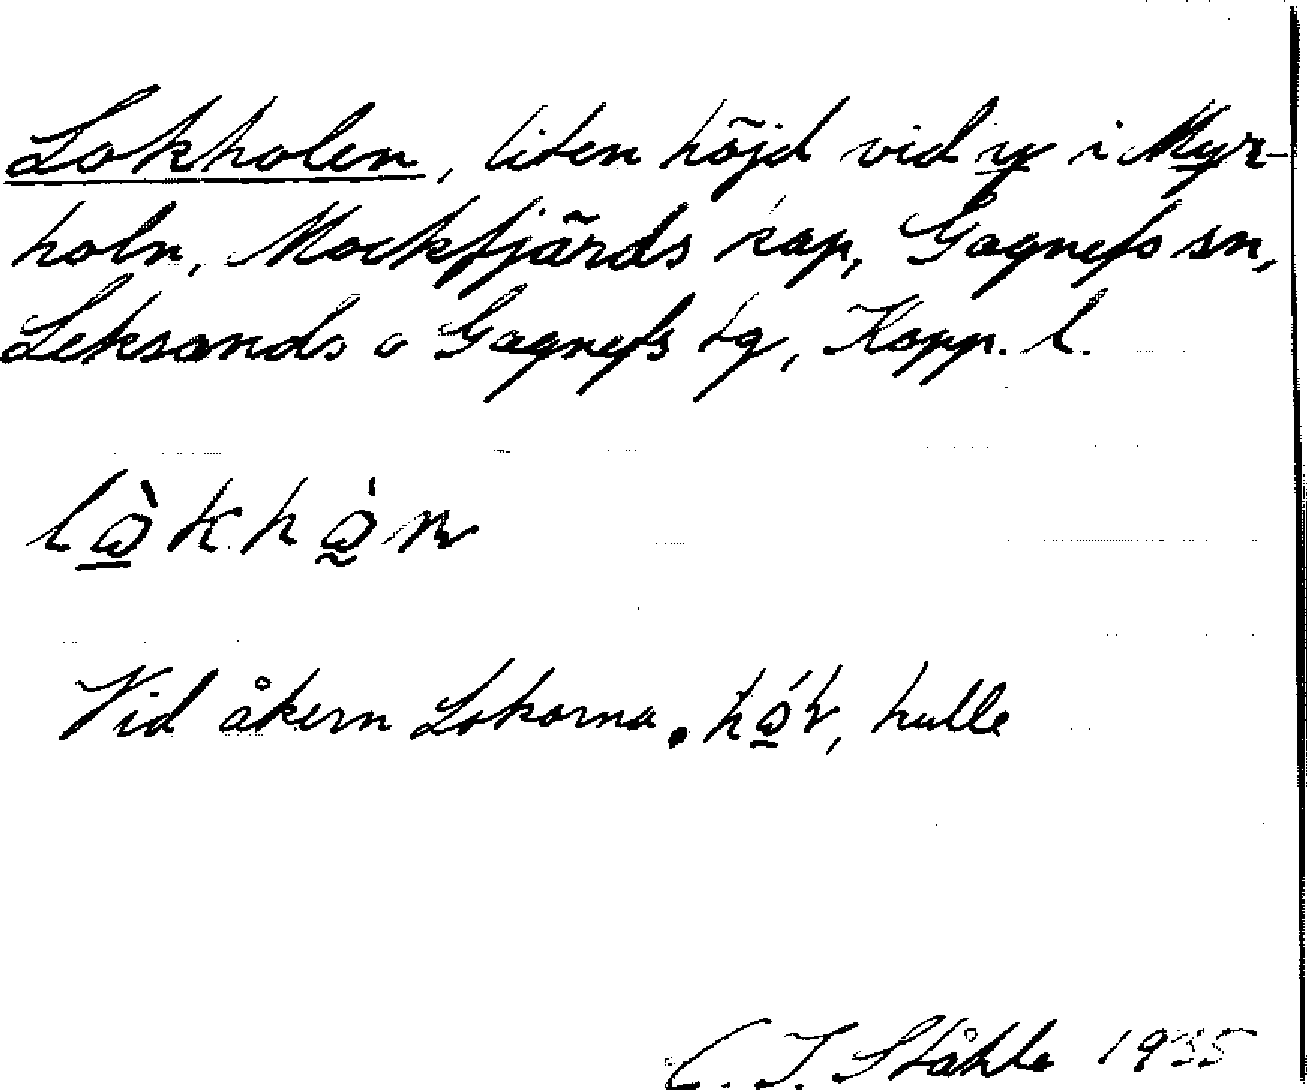 Lokholen, liten höjd vid y i Myr-
holn, Mockfjärds kap, Gagnefs sn,
Leksands o Gagnefs tg, Kopp. l.
Vid åkern Lokarna. kulle
C. I. Ståhle 1935